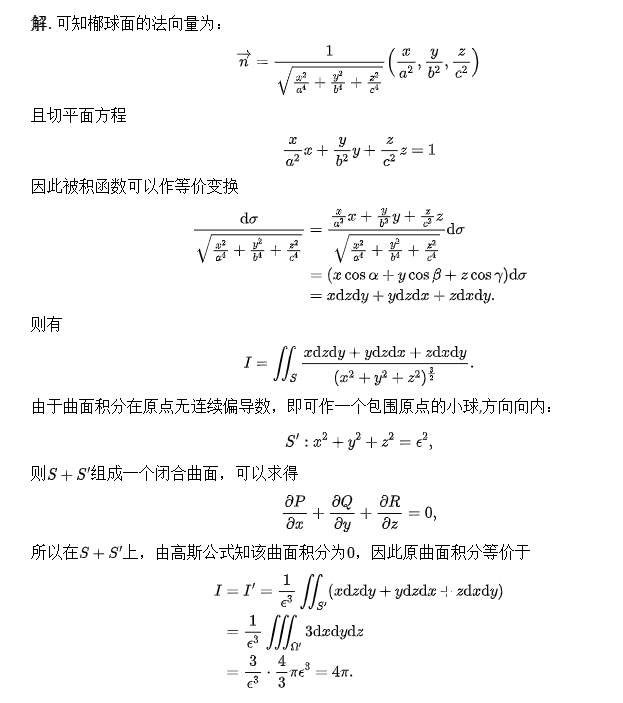 解. 可知椭球面的法向量为：
$\overrightarrow{n} = \frac{1}{\sqrt{\frac{x^2}{a^4} + \frac{y^2}{b^4} + \frac{z^2}{c^4}}} \left( \frac{x}{a^2}, \frac{y}{b^2}, \frac{z}{c^2} \right)$
且切平面方程
$\frac{x}{a^2}x + \frac{y}{b^2}y + \frac{z}{c^2}z = 1$
因此被积函数可以作等价变换
$\frac{\mathrm{d}\sigma}{\sqrt{\frac{x^2}{a^4} + \frac{y^2}{b^4} + \frac{z^2}{c^4}}} = \frac{\frac{x}{a^2}x + \frac{y}{b^2}y + \frac{z}{c^2}z}{\sqrt{\frac{x^2}{a^4} + \frac{y^2}{b^4} + \frac{z^2}{c^4}}} \mathrm{d}\sigma$
$= (x\cos\alpha + y\cos\beta + z\cos\gamma)\mathrm{d}\sigma$
$= x\mathrm{d}z\mathrm{d}y + y\mathrm{d}z\mathrm{d}x + z\mathrm{d}x\mathrm{d}y.$
则有
$I = \iint_S \frac{x\mathrm{d}z\mathrm{d}y + y\mathrm{d}z\mathrm{d}x + z\mathrm{d}x\mathrm{d}y}{(x^2 + y^2 + z^2)^{\frac{3}{2}}}.$
由于曲面积分在原点无连续偏导数，即可作一个包围原点的小球,方向向内：
$S' : x^2 + y^2 + z^2 = \epsilon^2,$
则$S + S'$组成一个闭合曲面，可以求得
$\frac{\partial P}{\partial x} + \frac{\partial Q}{\partial y} + \frac{\partial R}{\partial z} = 0,$
所以在$S + S'$上，由高斯公式知该曲面积分为0，因此原曲面积分等价于
$I = I' = \frac{1}{\epsilon^3} \iint_{S'} (x\mathrm{d}z\mathrm{d}y + y\mathrm{d}z\mathrm{d}x + z\mathrm{d}x\mathrm{d}y)$
$= \frac{1}{\epsilon^3} \iiint_{\Omega'} 3\mathrm{d}x\mathrm{d}y\mathrm{d}z$
$= \frac{3}{\epsilon^3} \cdot \frac{4}{3}\pi\epsilon^3 = 4\pi.$